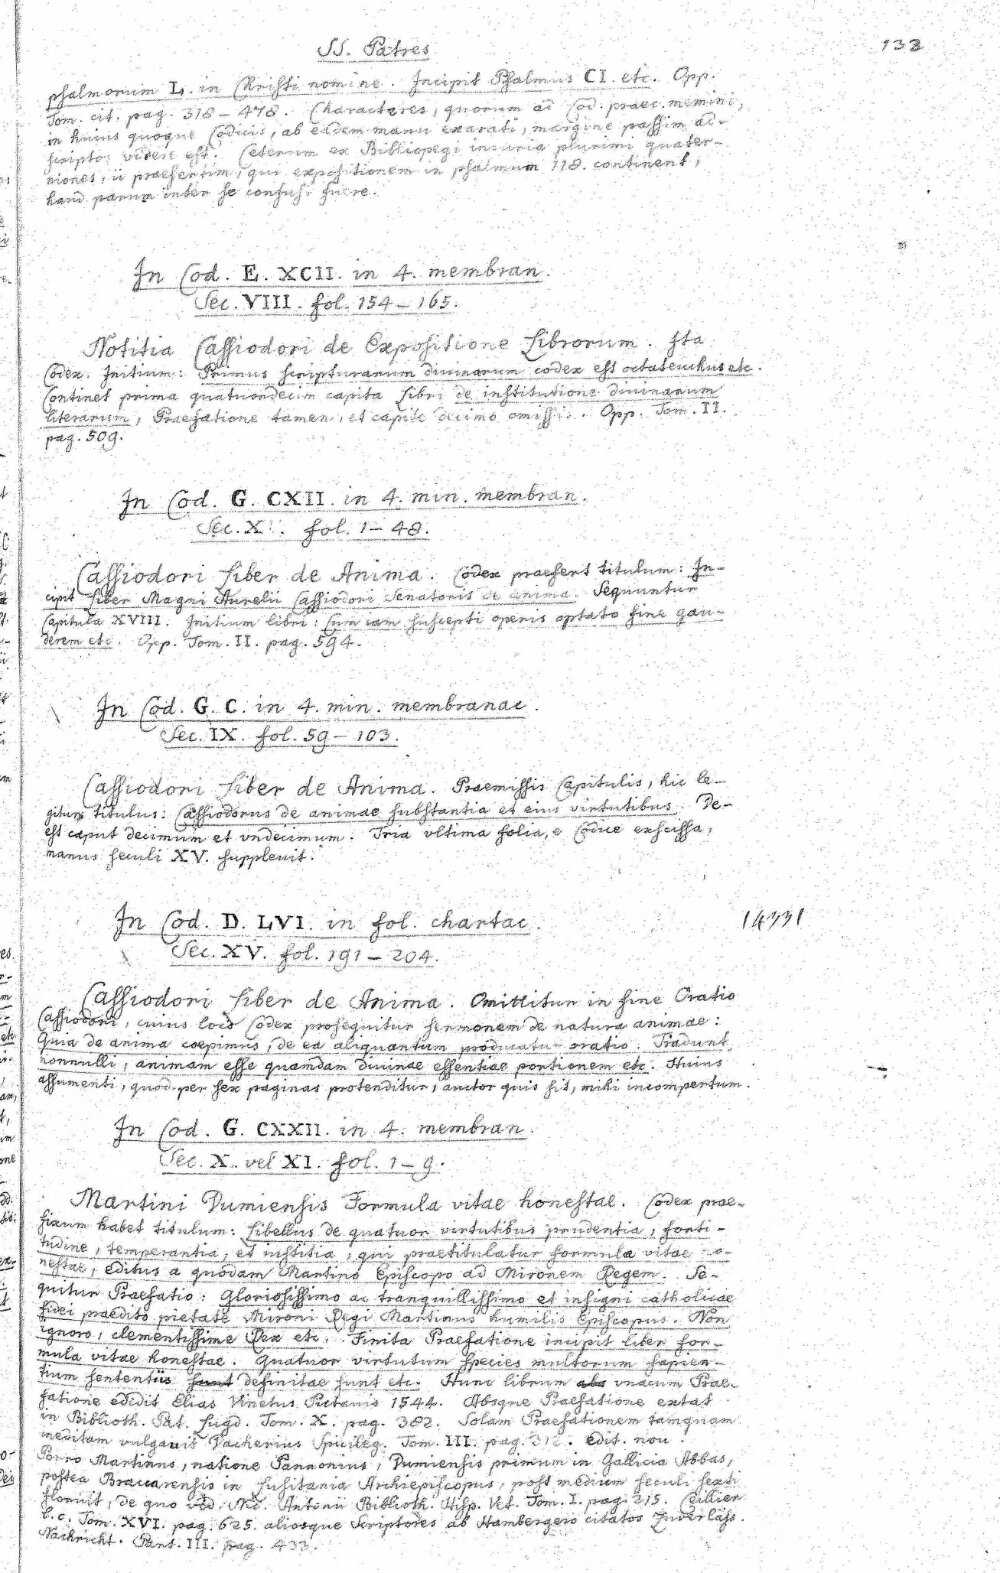 SS. Patres
133
psalmorum L. in Christi nomine. Incipit Psalmus CI. etc. Opp.
Tom. cit. pag. 318 – 478. Characteres, quorum ad Cod. praec. memini,
in huius quoque Codicis, ab eadem manu exarati, margine passim ad-
scriptos videri est. Ceterum ex Bibliopegi incuria plurimi quater-
niones, ii praesertim, qui expositionem in psalmum 118. continent,
haud parum inter se confusi fuere.
In Cod. E. XCII. in 4. membran.
Sec. VIII. fol. 154 – 165.
Notitia Cassiodori de Expositione Librorum. Ita
Codex. Initium: Primus scripturarum divinarum codex est octateuchus etc.
Continet prima quatuordecim capita Libri de institutione divinarum
literarum, Praefatione tamen, et capite decimo omissis. Opp. Tom. II.
pag. 509.
In Cod. G. CXII. in 4. min. membran.
Sec. X. fol. 1 – 48.
Cassiodori Liber de Anima. Codex praefert titulum: In-
cipit Liber Magni Aurelii Cassiodori Senatoris de anima. Sequuntur
Capitula XVIII. Initium libri: Cum iam suscepti operis optato fine gau-
derem etc. Opp. Tom. II. pag. 594.
In Cod. G. C. in 4. min. membranac.
Sec. IX. fol. 59 – 103.
Cassiodori Liber de Anima. Praemissis Capitulis, hic le-
gitur titulus: Cassiodorus de animae substantia et eius virtutibus. De-
est caput decimum et vndecimum. Tria vltima folia, e Codice exscissa,
manus seculi XV. supplevit.
In Cod. D. LVI. in fol. chartac.
14331
Sec. XV. fol. 191 – 204.
Cassiodori Liber de Anima. Omittitur in fine Oratio
Cassiodori, cuius loco Codex prosequitur sermonem de natura animae:
Quia de anima coepimus, de ea aliquantum producatur oratio. Tradunt
nonnulli, animam esse quamdam divinae essentiae portionem etc. Huius
assumenti, quod per sex paginas protenditur, auctor quis sit, mihi incompertum.
In Cod. G. CXXII. in 4. membran.
Sec. X. vel XI. fol. 1 – 9.
Martini Dumiensis Formula vitae honestae. Codex prae-
fixum habet titulum: Libellus de quatuor virtutibus prudentia, forti-
tudine, temperantia, et iustitia, qui praetitulatur formula vitae ho-
nestae, editus a quodam Martino Episcopo ad Mironem Regem. Se-
quitur Praefatio: Gloriosissimo ac tranquillissimo et insigni catholicae
fidei praedito pietate Mironi Regi Martinus humilis Episcopus. Non
ignoro, clementissime Rex etc. Finita Praefatione incipit liber for-
mula vitae honestae. Quatuor virtutum species multorum sapien-
tium sententiis definitae sunt etc. Hunc librum vnacum Prae-
fatione edidit Elias Vinetus Pictavis 1544. Absque Praefatione extat
in Biblioth. Pat. Lugd. Tom. X. pag. 382. Solam Praefationem tamquam
ineditam vulgavit Dacherius Spicileg. Tom. III. pag. 312. edit. nou.
Porro Martinus, natione Pannonius, Dumiensis primum in Gallicia Abbas,
postea Braccarensis in Lusitania Archiepiscopus, post medium seculi sexti
floruit, de quo vid. Nic. Antonii Biblioth. Hisp. Vet. Tom. I. pag. 215. Ceillier
l. c. Tom. XVI. pag. 625. aliosque Scriptores ab Hambergero citatos Zuverläss.
Nachricht. Part. III. pag. 433.